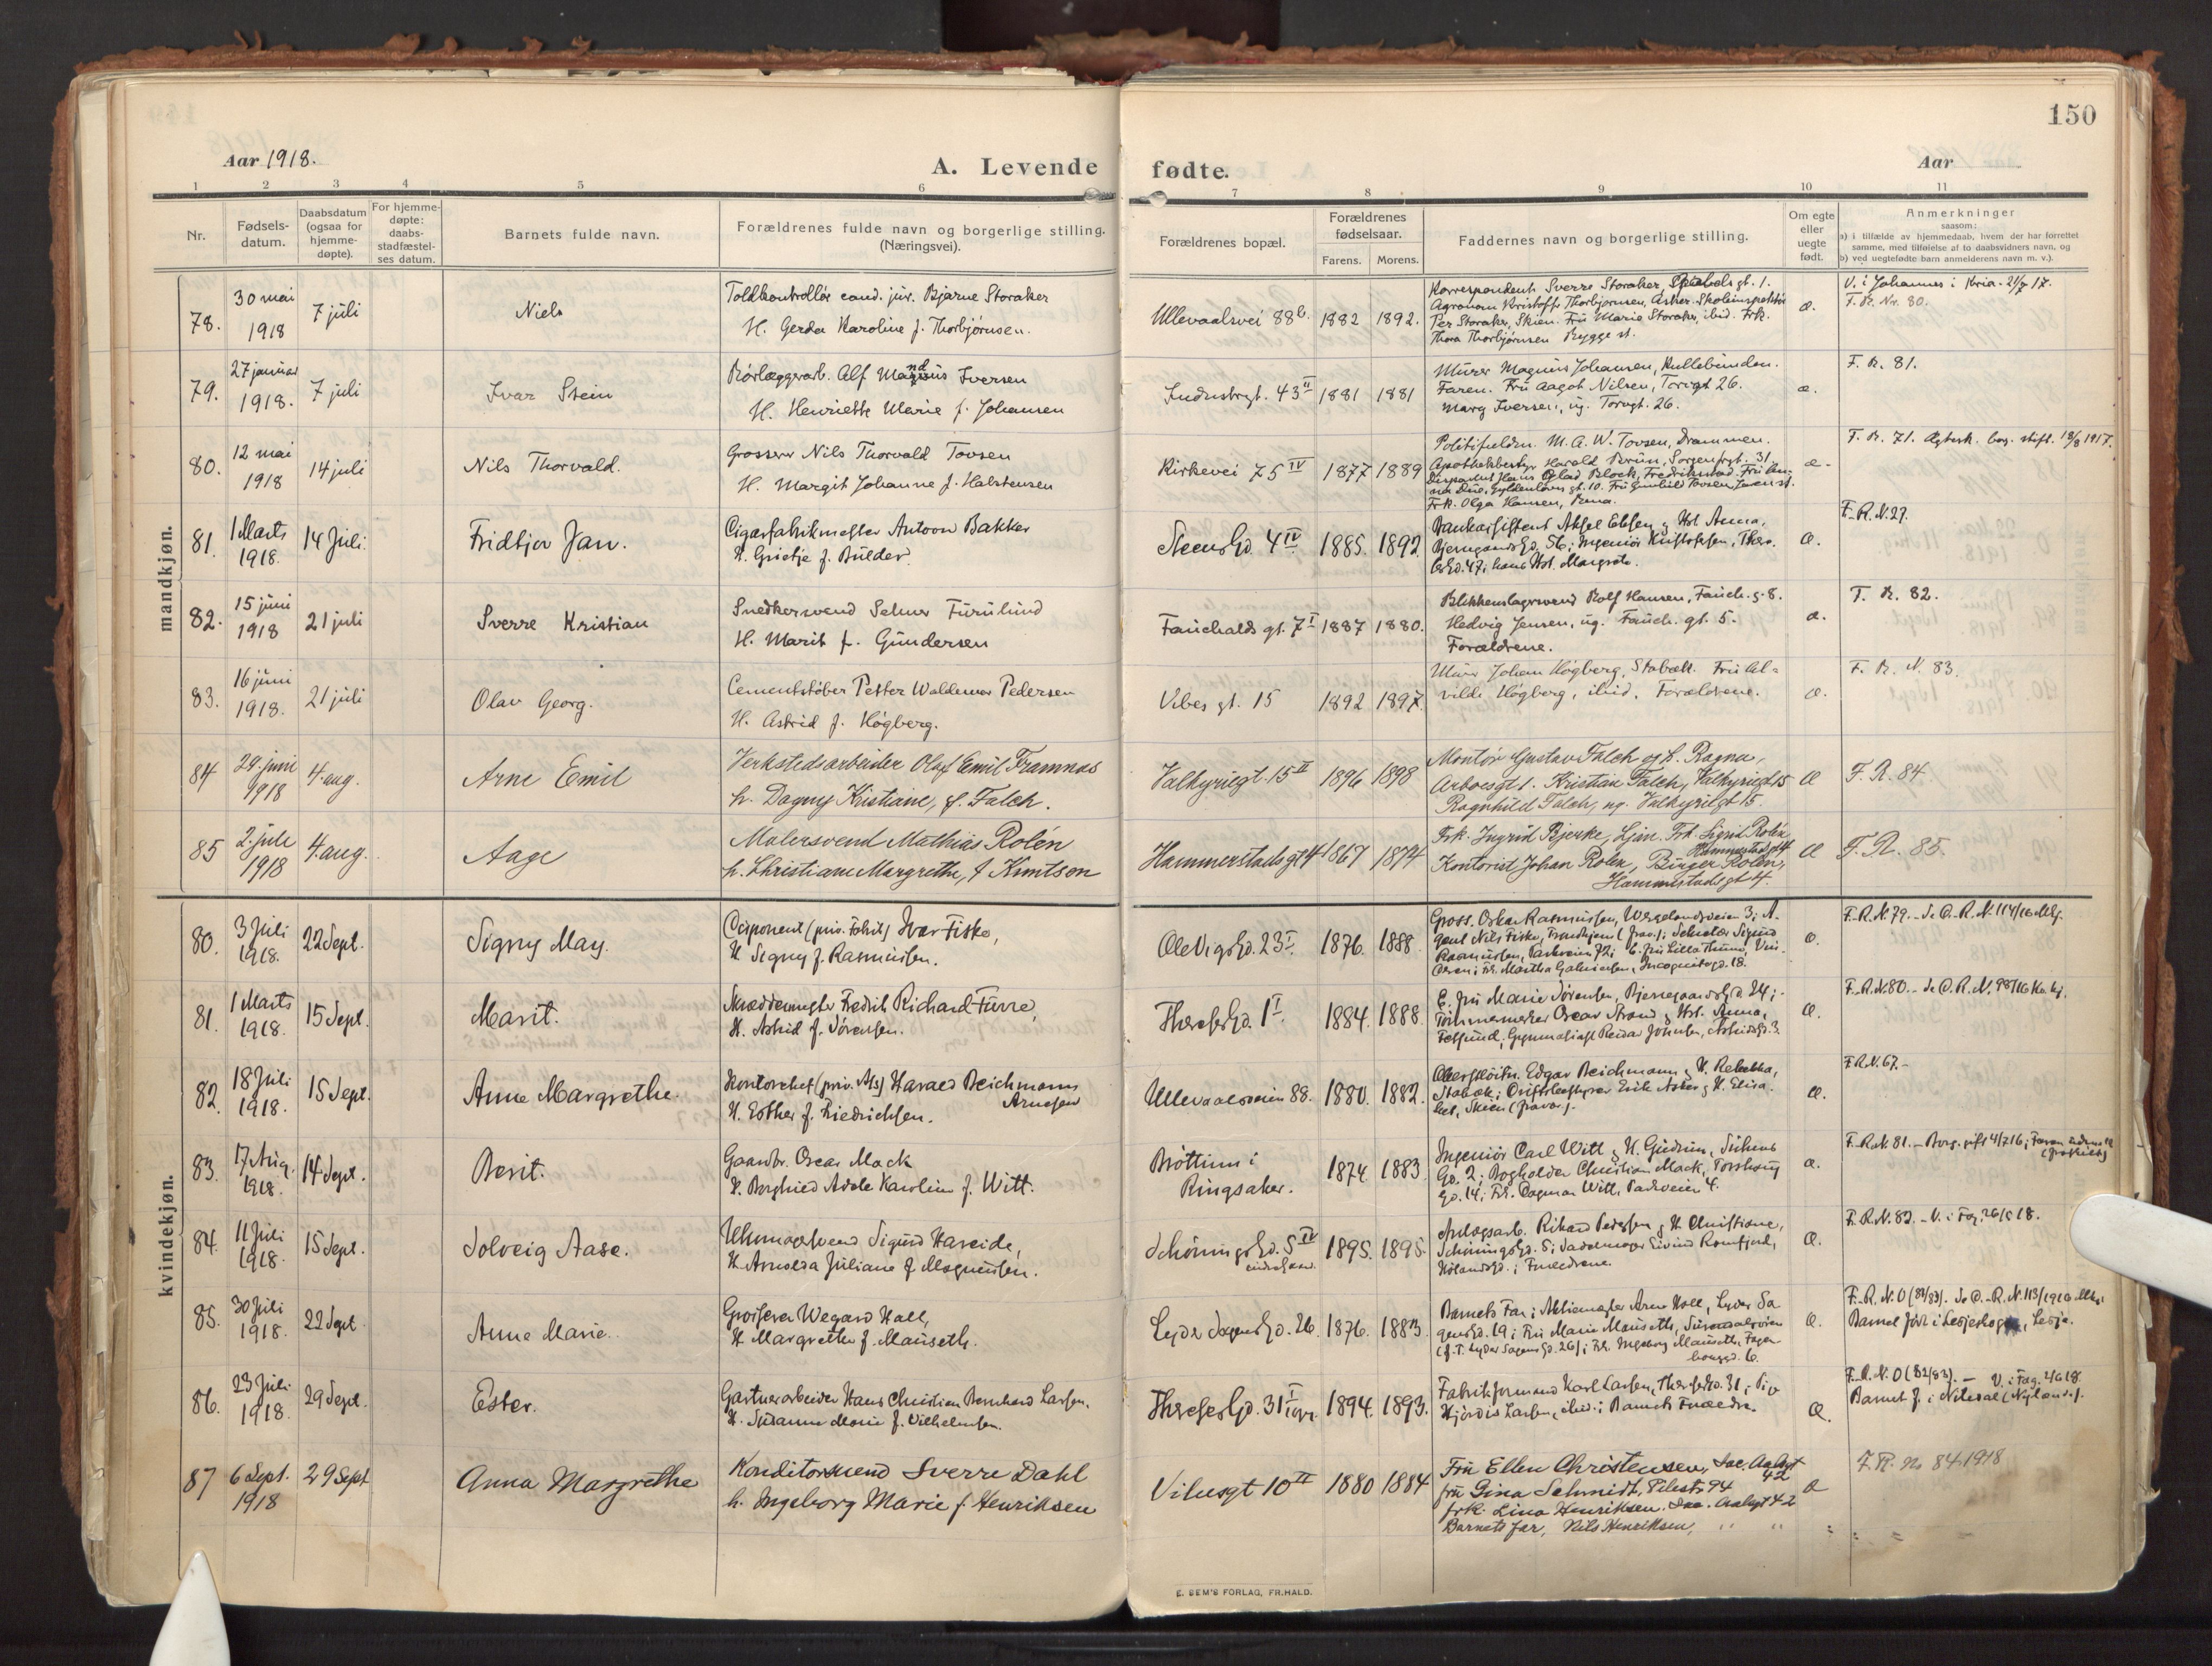 150
Aar 1918.
A. Levende fødte.
Aar
1 2 3 4 5 6 7 8 9 10 11
Nr.
Fødsels-
datum.
Daabsdatum
(ogsaa for
hjemme-
døpte).
For hjemme-
døpte:
daabs-
stadfæstel-
ses datum.
Barnets fulde navn.
Forældrenes fulde navn og borgerlige stilling.
(Næringsvei).
Forældrenes bopæl.
Forældrenes
fødselsaar.
Farens. Morens.
Faddernes navn og borgerlige stilling.
Om egte
eller
uegte
født.
Anmerkninger
saasom:
a) i tilfælde av hjemmedaab, hvem der har forrettet
samme, med tilføielse af to daabsvidners navn, og
b) ved uegtefødte barn anmelderens navn m. v.).
mandkjøn.
78.
30 mai
1918
7 juli
Niels
Toldkontrollør cand. jur. Bjarne Storaker
H. Gerda Karoline f. Thorbjørnsen.
Ullevaalsvei 88b.
1882 1892.
Korrespondent Sverre Storaker,
Agronom Kristoffer Thorbjørnsen, Asker. Skoleinspektør
Per Storaker, Skien. Fru Marie Storaker, ibid. Frk.
Thora Thorbjørnsen
æ.
V. i Johannes i Kria. 21/7 17.
F. R. Nr. 80.
79.
27 januar
1918.
7 juli
Ivar Stein
Rørlæggerarb. Alf Magnus Iversen
H. Henriette Marie f. Johansen
Industrigt. 43 II
1881 1881
Murer Magnus Johansen,
Faren. Fru Aagot Nilsen, Torvgt 26.
Marg Iversen, ug. Torvgt. 26.
æ.
F. R. 81.
80.
12 mai
1918
14 juli
Nils Thorvald.
Grosserer Nils Thorvald Tovsen
H. Margit Johanne f. Halstensen
Kirkevei 75 IV
1877 1889
M. A. W. Tovsen, Drammen.
Harald Bruun, Sorgenfrigt. 31
Block, Fredrikstad.
Frk. Olga Hansen,
æ.
F. R. 71. borg. stift. 18/8 1917.
81.
1 Marts
1918.
14 Juli.
Fridtjov Jan.
Cigarfabrikmester Antoon Bakker
H. Grietje f. Bulder.
Steensgd. 4 IV
1885. 1892.
Bankassistent Aksel Ebbesen og Hst. Anna,
Bjerregaardsgd. 56; Ingeniør Kristoffersen, There-
sesgd. 47; hans Hst. Margrete.
æ.
F.R.N. 27.
82.
15 juni
1918
21 juli
Sverre Kristian
Snedkersvend Selmer Furulund
H. Marit f. Gundersen
Fauchalds gt. 7 I
1887 1880.
Blikkenslagersvend Rolf Hansen, Fauch. g. 8.
Hedvig Jensen, ug. Fauch. gt. 5.
Forældrene.
æ.
F. R. 82.
83.
16 juni
1918.
21 juli
Olav Georg.
Cementstøber Petter Waldemar Pedersen
H. Astrid f. Høgberg.
Vibes gt. 15
1892 1897.
Murer Johan Høgberg, Stabæk. Fru Al-
vilde Høgberg, ibid. Forældrene.
æ.
F. R. N. 83.
84
29. juni
1918
4. aug.
Arne Emil
Verkstedsarbeider Olaf Emil Framnæs
h. Dagny Kristiane, f. Falch.
Valkyriegt. 15 II
1896 1898
Montør Gustav Falch og h. Ragna,
Arboesgt 1. Kristian Falch, Valkyriegt 15
Ragnhild Falch, ug. Valkyriegt 15.
Æ
F. R. 84.
85
2. juli
1918
4. aug.
Aage
Malersvend Mathias Rolén
h. Christiane Margrethe, f. Knutsen
Hammerstads gt 4
1867 1874
Frk. Ingrid Bjerke, Ljan. Frk. Sigrid Rolén
Hammerstadgt 4.
Kontorist Johan Rolén, Birger Rolén,
Hammerstadsgt 4.
Æ
F. R. 85.
kvindekjøn.
80.
3 Juli
1918.
22 Sept.
Signy May.
Disponent (priv. Fabrik) Ivar Fiske,
H. Signy f. Rasmussen.
Ole Vigsgd. 23 I
1876. 1888.
Gross. Oskar Rasmussen, Wergelandsveien 3; A-
gent Nils Fiske, Trondhjem (frav.); Sigurd
Rasmussen, Parkveien 72;
Fr. Martha Incognitogd. 18.
æ.
F.R.N. 79.
81.
1 Marts
1918.
15 Sept.
Marit.
Skreddermester Fredrik Richard Furre,
H. Astrid f. Sørensen.
Theresesgd. 1 I
1884. 1888.
E. Fru Marie Sørensen, Bjerregaardsgd. 24;
Tømmermerker Oscar Strand og Hst. Anna,
Fetsund; Gymnasiast Reidar Johnsen,
Æ.
F.R.N. 80.
82.
18 Juli
1918.
15 Sept.
Anne Margrethe.
Kontorchef (priv. A/s) Harald Beichmann
Arnesen
H. Esther f. Friedrichsen.
Ullevaalsveien 88.
1880. 1882.
Edgar Beichmann og H. Rebekka,
Stabæk; Erik Asker og H. Elisa-
bet, Skien (frav.).
æ.
F.R.N. 67.-
83.
17 Aug.
1918.
14 Sept.
Berit.
Gaardbr. Oscar Mack
H. Borghild Adele Karoline f. Witt.
Brøttum i
Ringsaker.
1874. 1883.
Ingeniør Carl Witt og H. Gudrun, Suhms
Gd. 2; Bogholder Christian Mack, Torshaug
Gd. 14; Fr. Dagmar Witt, Parkveien 4.
æ.
F.R.N. 81. - Borg. gift 4/7 16;
84.
11 Juli
1918.
15 Sept.
Solveig Aase.
Uhrmagersvend Sigurd Hareide,
H. Arnolda Juliane f. Magnussen.
Schøningsgd. 5 IV
1895. 1895.
Anlægsarb. Rikard Pedersen og H. Christiane,
Schøningsgd. 5; Sadelmager Eivind Romfjord,
Forældrene.
Æ.
F.R.N. 82. - V. i Fag. 26/5 18.
85.
30 Juli
1918.
22 Sept.
Anne Marie.
Grosserer Wegard Hall,
H. Margrethe f. Mauseth.
Lyder Sagensgd. 26.
1876. 1883.
Barnets Far; Aktiemegler Arne Hall, Lyder Sa-
gensgd. 19; Fru Marie Mauseth,
(f.T. Lyder Sagensgd. 26); Fr. Ingeborg Mauseth, Fager-
borggd. 6.
Æ.
F.R.N. 0 (81/83).
Barnet født i Lesjeskogen, Lesja.
86.
23 Juli
1918.
29 Sept.
Ester.
Gartnerarbeider Hans Christian Bernhard Larsen.
H. Susanne Marie f. Vilhelmsen.
Theresesgd. 31 I
1894. 1893.
Fabrikformand Karl Larsen, Theresesgd. 31;
Hjørdis Larsen, ibid.; Barnets Forældre.
Æ.
F.R.N. 0 (82/83). - V. i Fag. 2/6 18.
Barnet f. i Nitedal
87
6 Sept.
1918
29 Sept
Anna Margrethe
Konditorsvend Sverre Dahl
h. Ingeborg Marie f. Henriksen
Vibesgt 10 II
1880 1884
Fru Ellen Christensen, Jac. Aalsgt
42
fru Gina Schmidt, Pilestr 94
frk. Lina Henriksen. Jac. Aalsgt 42
Barnets far, Nils Henriksen, " "
æ
F. R. No 84. 1918
E. SEM'S FORLAG, FR.HALD.